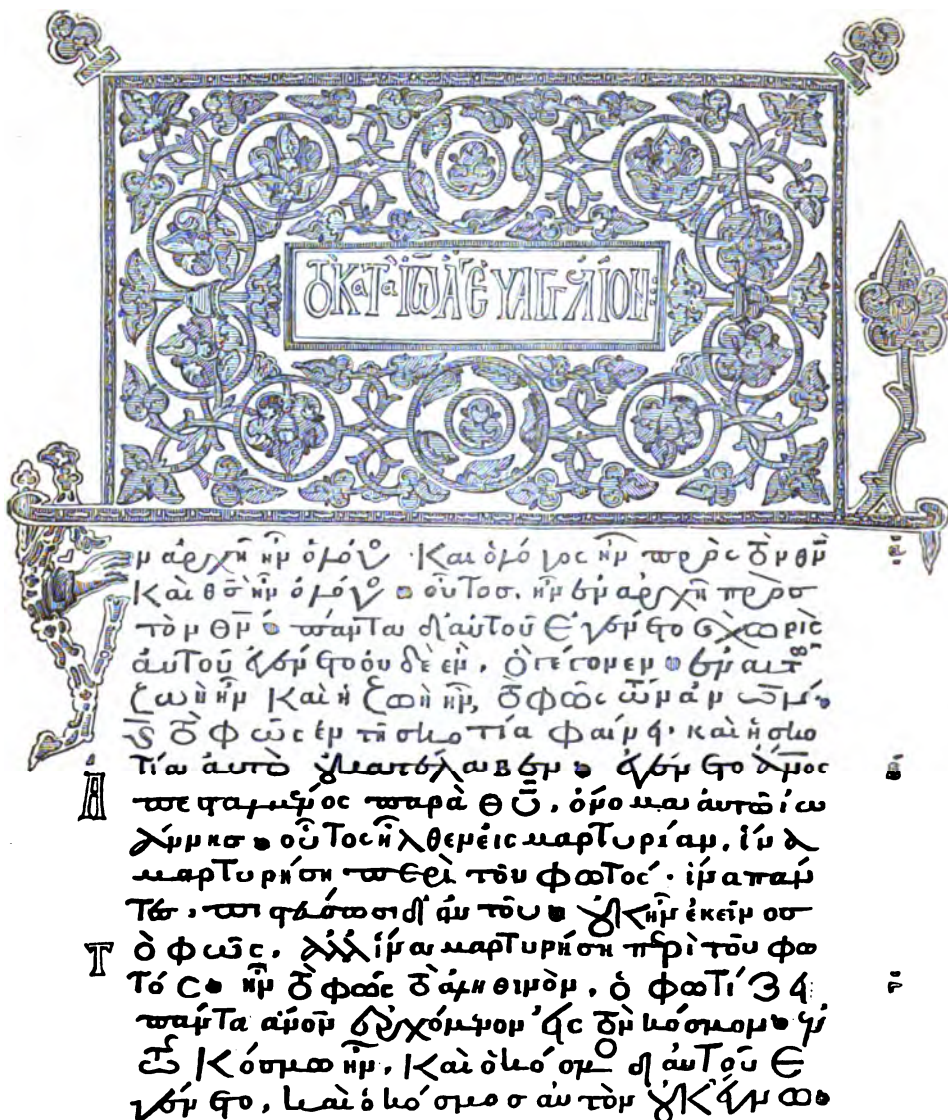 ΤὸΚατὰ ἸῶΑΓ ΕΥΑΓΓΕΛΙΟΝ:
Ἐν ἀρχῆ ἦν ὁ λόγος · Καὶ ὁ λόγος ἦν πρὸς τὸν θν
Καὶ θσ ἦν ὁ λόγος . οὗτοσ, ἦν ἐν ἀρχῆ πρὸσ
τὸν θν . πάντα δι αὐτοῦ ἐγένετο ϗ χωρὶς
αὐτοῦ ἐγένετο οὐδὲ ἐν, ὃ γέγονεν . ἐν αυτῶ
ζωὴ ἦν Καὶ ἡ ζωὴ ἦν, τὸ φῶς τῶν ἀνῶν .
ϗ τὸ φῶς ἐν τῆ σκοτία φαίνει · καὶ ἡ σκο
τία αὐτὸ οὐ κατέλαβεν . ἐγένετο ἄνος
Ἀπεσταλμένος παρὰ θυ, ὄνομα αὐτῶ ἰω
άννησ . οὗτος ἦλθεν εἰς μαρτυρίαν, ἵνα
μαρτυρήση περὶ τοῦ φωτός · ἵνα πάν
τεσ, πιστεύσωσι δι αὐτοῦ . οὐκ ἦν ἐκεῖνοσ
Τὸ φῶς, ἀλλ ἵνα μαρτυρήση περὶ τοῦ φω
τός . ἦν τὸ φῶς τὸ ἀληθινὸν, ὁ φωτίζει
πάντα ἄνον ἐρχόμενον εἰς τὸν κόσμον . ἐν
τῶ Κόσμω ἦν, Καὶ ὁ κόσμος δι αὐτοῦ ἐ
γένετο, καὶ ὁ κόσμοσ αὐτὸν οὐκ ἔγνω .